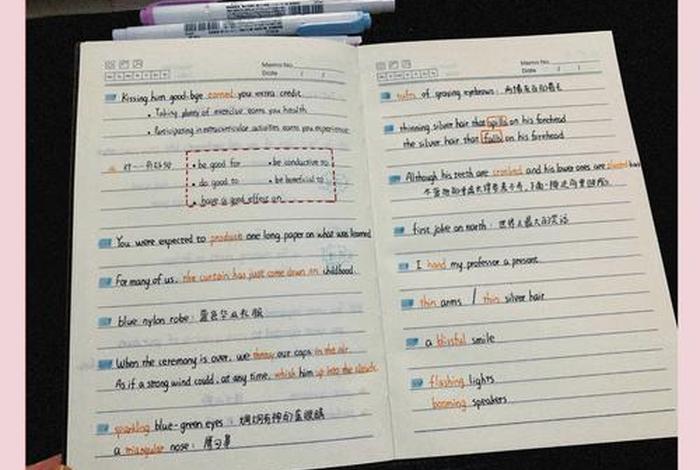 Memo No.
Date / /
Kissing him good-bye earned you extra credit.
• Taking plenty of exercise earns you health
• Participating in extracurricular activities earns you experience
对……有好处
• be good for • be conducive to
• do good to • be beneficial to
• have a good effect on
You were expected to produce one long paper on what was learned
For many of us, the curtain has just come down on childhood.
blue nylon robe: 蓝色尼龙礼服
When the ceremony is over, we throw our caps in the air
As if a strong wind could, at any time, whish him up into the clouds.
sparkling blue-green eyes 炯炯有神的蓝绿眼
a triangular nose: 鹰勾鼻
Memo No.
Date / /
tufts of graying eyebrows:
thinning silver hair that spills on his forehead
the silver hair that falls on his forehead
Although his teeth are crooked and his lower ones are
first joke on north: 世界上最大的笑话
I hand my professor a present
thin arms / thin silver hair
a blissful smile
flashing lights
booming speakers